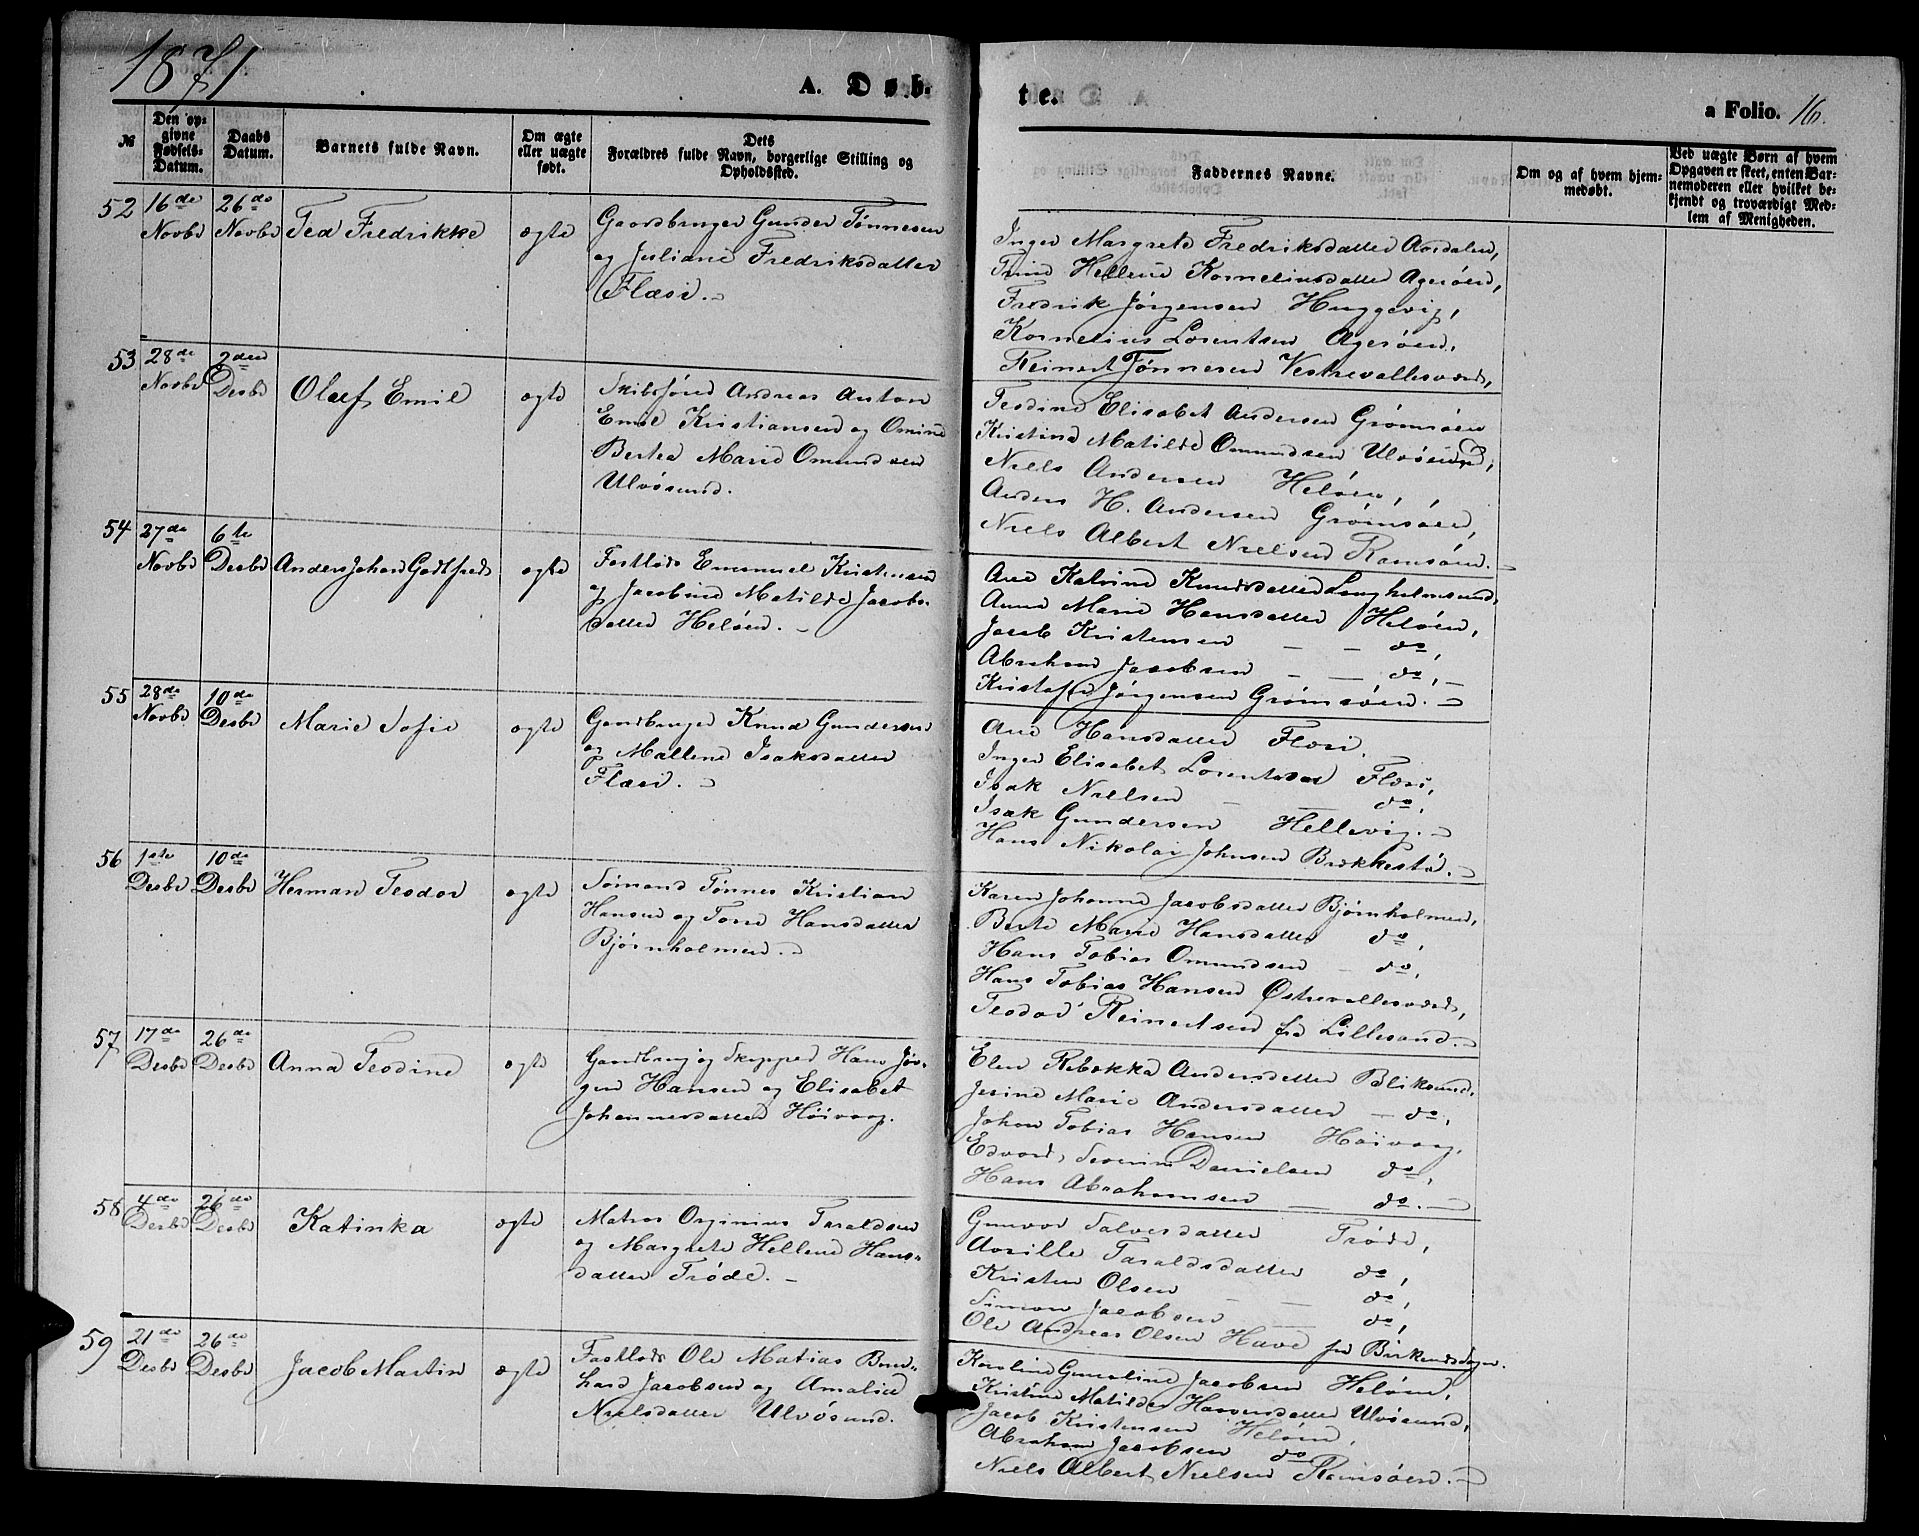 1871
A. Døb-
te.
a Folio. 16.
№
Den op-
givne
Fødsels-
Datum.
Daabs
Datum.
Barnets fulde Navn.
Om ægte
eller uægte
født.
Dets
Forældres fulde Navn, borgerlige Stilling og
Opholdssted.
Faddernes Navne.
Om og af hvem hjem-
medøbt.
Ved uægte Børn af hvem
Opgaven er skeet, enten Bar-
nemoderen eller hvilket be-
kjendt og troværdigt Med-
lem af Menigheden.
52
16de
Novbr
26de
Novbr
Tea Fredrikke
ægte
Gaardbruger Gunder Tønnesen
og Juliane Fredriksdatter
Flæsi.
Inger Margrete Fredriksdatter Aasdalen,
Trine Hellene Kornelinsdatter Agerøen,
Fredrik Jørgensen Heggevig,
Kornelius Lorentsen Agerøen,
Reinert Tønnesen Vestrevallesværd,
53
28de
Novbr
2den
Desbr
Olaf Emil
ægte
Skibsfører Andreas Anton
Emil Kristiansen og Omine
Bertea Marie Omundsen
Ulvøsund.
Teodine Elisabet Andersen Grømsøen
Kristine Matilde Omundsen Ulvøsund,
Niels Andersen Heløen,
Anders H. Andersen Grømsøen,
Niels Albert Nielsen Ramsøen.
54
27de
Novbr
6te
Desbr
Anders Johan Godtfred
ægte
Fastlods Emanuel Kristensen
og Jacobine Matilde Jacobs-
datter Heløen.
Ane Katrine Knudsdatter Langholmsund,
Anne Marie Hansdatter Heløen,
Jacob Kristensen — — do,
Abraham Jacobsen — — do,
Kristofer Jørgensen Grømsøen.
55
28de
Novbr
10de
Desbr
Marie Sofie
ægte
Gaardbruger Knud Gundersen
og Mallene Isaksdatter
Flæsi.
Ane Hansdatter Flæsi.
Inger Elisabet Lorentsdat Flæsi,
Isak Nielsen — — do,
Isak Gundersen Hellevig.
Hans Nikolai Johnsen Brækkestø.
56
1ste
Desbr
10de
Desbr
Herman Teodor
ægte
Sømand Tønnes Kristian
Hansen og Tone Hansdatter
Bjørnholmen.
Karen Johanne Jacobsdatter Bjørnholmen,
Berte Marie Hansdatter do,
Hans Tobias Omundsen — do,
Hans Tobias Hansen Østrevallesværd,
Teodor Reinertsen fra Lillesand.
57
17de
Desbr
26de
Desbr
Anna Teodine
ægte
Gaardbrug og Skipper Hans Jør-
gen Hansen og Elisabet
Johannesdatter Høivaag.
Elen Rebekka Andersdatter Bliksund,
Jerine Marie Andersdatter — do,
Johan Tobias Hansen Høivaag,
Edvard Severin Danielsen do,
Hans Abrahamsen — do.
58
4de
Desbr
26de
Desbr
Katinka
ægte
Matros Orginius Taraldsen
og Margrete Hellene Hans-
datter Trøde.
Gunvor Salvesdatter Trøde,
Aasille Taraldsdatter do,
Kristen Olsen — — do,
Simon Jacobsen — do,
Ole Andreas Olsen Have fra Birkenæs Sogn.
59
21de
Desbr
26de
Desbr
Jacob Martin
ægte
Fastlods Ole Matias Bern-
hard Jacobsen og Amalie
Nielsdatter Ulvøsund.
Karoline Gunoline Jacobsen Heløen,
Kristine Matilde Hansdatter Ulvøsund,
Jacob Kristensen Heløen,
Abraham Jacobsen do
Niels Albert Nielsen Ramsøen.